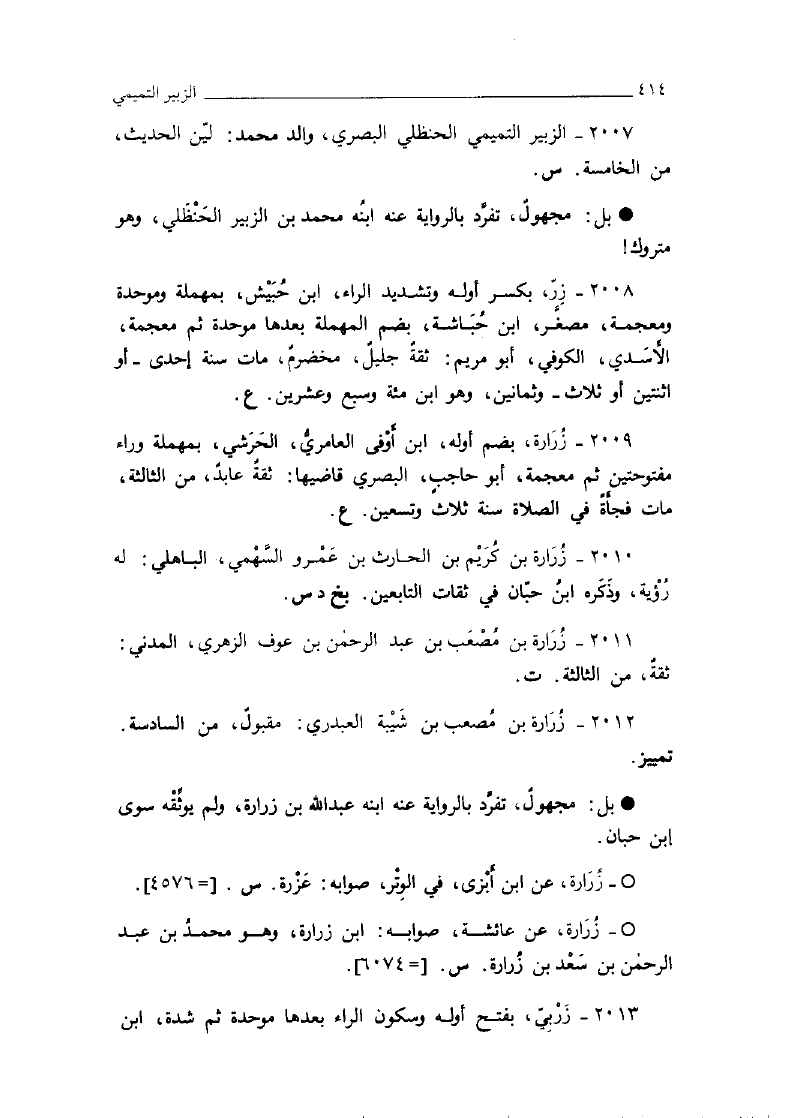 ٤١٤ الزبير التميمي
٢٠٠٧ - الزبير التميمي الحنظلي البصري، والد محمد: ليّن الحديث،
من الخامسة. س.
● بل: مجهولٌ، تفرَّد بالرواية عنه ابنُه محمد بن الزبير الحَنْظَلي، وهو
متروك!
٢٠٠٨ - زِرّ، بكسر أوله وتشديد الراء، ابن حُبَيْش، بمهملة وموحدة
ومعجمة، مصغَّر، ابن حُبَاشة، بضم المهملة بعدها موحدة ثم معجمة،
الأَسَدي، الكوفي، أبو مريم: ثقةٌ جليلٌ، مخضرمٌ، مات سنة إحدى - أو
اثنتين أو ثلاث - وثمانين، وهو ابن مئة وسبع وعشرين. ع.
٢٠٠٩ - زُرَارة، بضم أوله، ابن أَوْفى العامريُّ، الحَرَشي، بمهملة وراء
مفتوحتين ثم معجمة، أبو حاجبٍ، البصري قاضيها: ثقةٌ عابدٌ، من الثالثة،
مات فجأةً في الصلاة سنة ثلاث وتسعين. ع.
٢٠١٠ - زُرَارة بن كُرَيْم بن الحارث بن عَمْرو السَّهْمي، الباهلي: له
رُؤْية، وذَكَره ابنُ حبّان في ثقات التابعين. بخ د س.
٢٠١١ - زُرَارة بن مُصْعَب بن عبد الرحمٰن بن عوف الزهري، المدني:
ثقةٌ، من الثالثة. ت.
٢٠١٢ - زُرَارة بن مُصعب بن شَيْبة العبدري: مقبولٌ، من السادسة.
تمييز.
● بل: مجهولٌ، تفرَّد بالرواية عنه ابنه عبدالله بن زرارة، ولم يوثِّقْه سوى
إبن حبان.
○ - زُرَارة، عن ابن أَبْزى، في الوِتْر، صوابه: عَزْرة. س. [= ٤٥٧٦].
○ - زُرَارة، عن عائشة، صوابه: ابن زرارة، وهو محمدُ بن عبد
الرحمٰن بن سَعْد بن زُرارة. س. [= ٦٠٧٤].
٢٠١٣ - زَرْبِيّ، بفتح أوله وسكون الراء بعدها موحدة ثم شدة، ابن